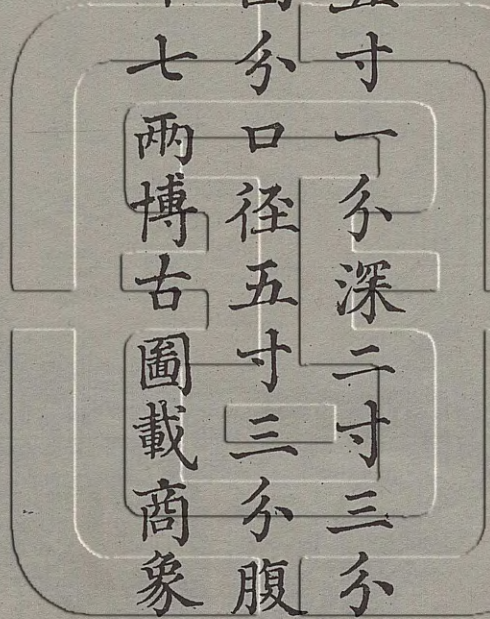 寸一分深二寸三分
分口徑五寸三分腹
七兩博古圖載商象